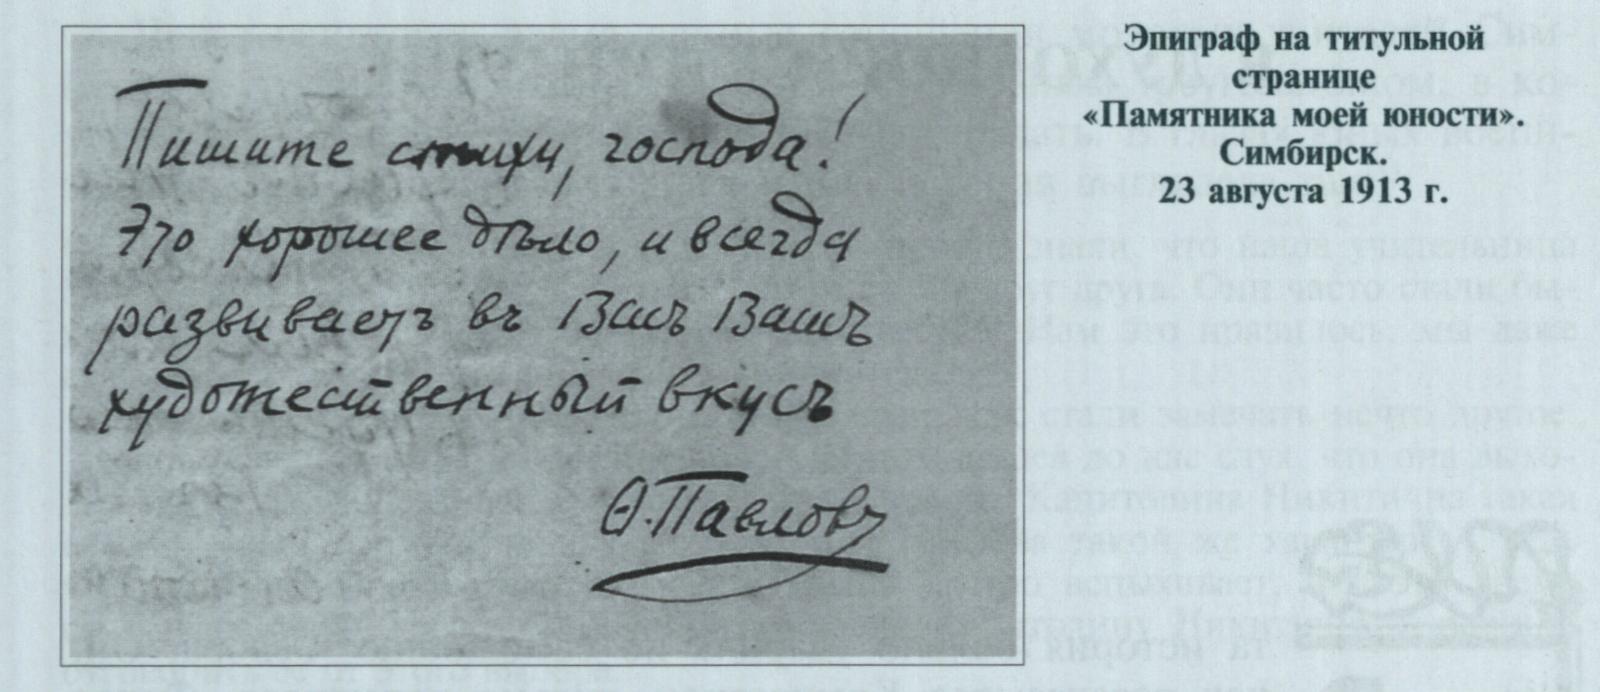 Пишите стихи, господа!
Это хорошее дѣло, и всегда
развиваетъ въ Васъ Вашъ
художественный вкусъ
Ѳ. Павловъ
Эпиграф на титульной
странице
«Памятника моей юности».
Симбирск.
23 августа 1913 г.